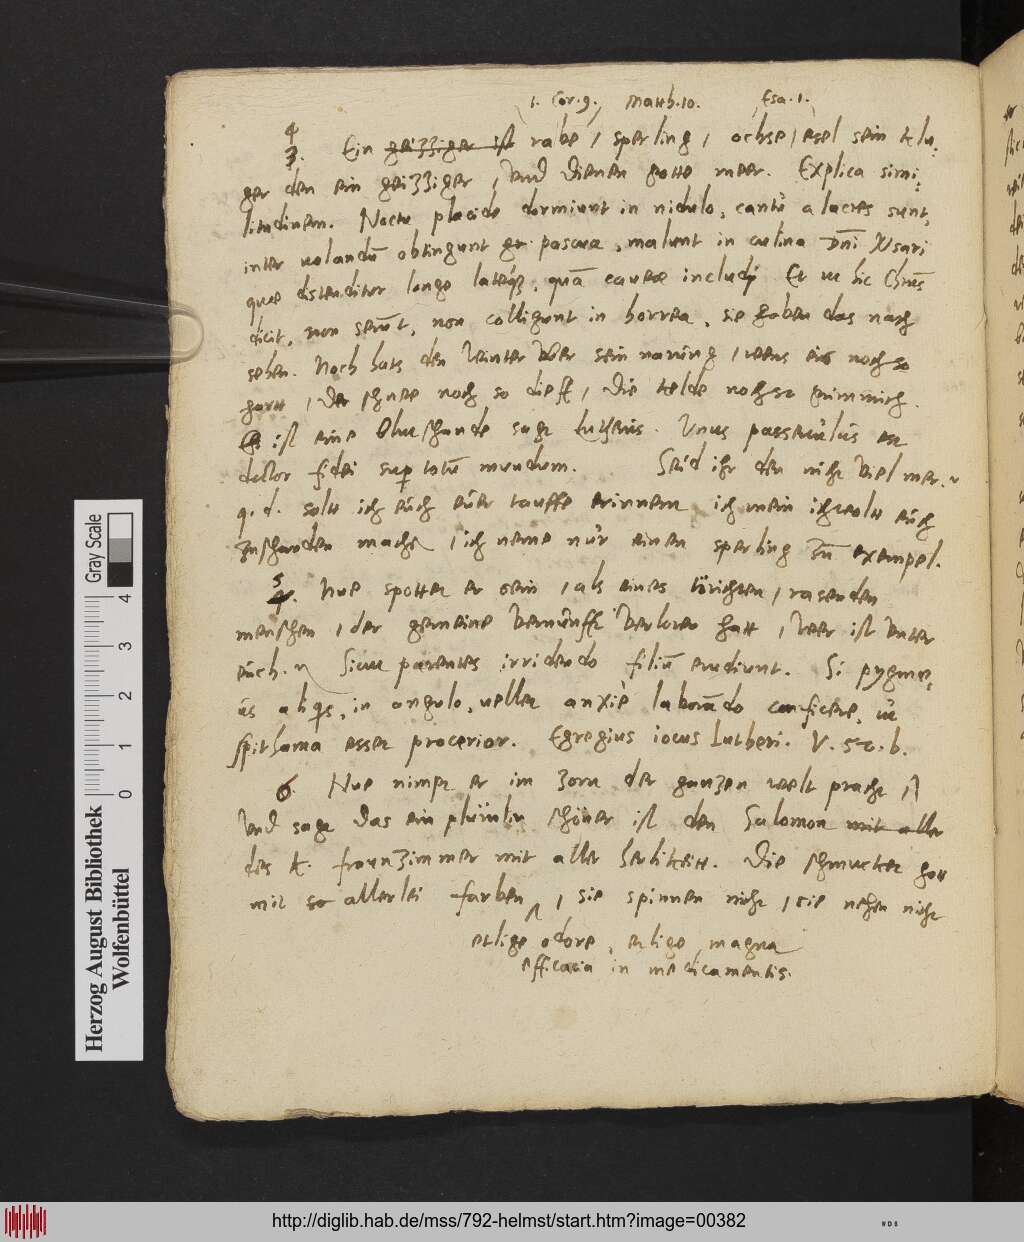 1. Cor. 9. Matth. 10. Esa. 1.
4
3. Ein geizziger ist rabe, sperling, ochse, esel sein klu-
ger den ein geizziger, vnd dienen gotte meer. Explica simi-
litudinem. Noctu placide dormiunt in nidulo, cantu alacres sunt,
inter volandu obtingunt pascua, malunt in culina Dni
quae distenditur longe lateq, qua caveae includi Et ut hic Chrus
dicit, non serut, non colligunt in horrea, sie haben das nach
sehen. Noch hats den winter vber sein narung, wens eis noch so
hart, der schnee noch so dieff, die kelde noch so grimmich.
Es ist eine schande sagt Lutherus. Unus passerculus est
doctor fidei super totu mundum. Seid ihr den nicht viel mer.
q. d. solt ich euch euer tauffe erinnern ich mein ich wolt euch
zuschanden machen, ich neme nur einen sperling zu exempel.
5
4. Nue spottet er sein, als eines törichten, rasenden
menschen, der gemeine vernunfft verloren hatt, Weer ist vnter
euch. Sicut parentes irridendo filiu erudiunt. Si pygmae-
us aliqs, in angulo, vellet anxie laborado conficere, ut
spithama esset procerior. Egregius iocus Lutheri. V. 50. b.
6. Nue nimpt er im zorn der ganzen welt pracht,
vnd sagt das ein plumlin schöner ist den Salomon mit aller
des k. fraunzimmer mit aller herlikeitt. Die schmucket gott
mit so allerlei farben, sie spinnen nicht, sie nehen nicht
odore, magna
efficacia in medicamentis.
Herzog August Bibliothek
Wolfenbüttel
0 1 2 3 4
Gray Scale
http://diglib.hab.de/mss/792-helmst/start.htm?image=00382